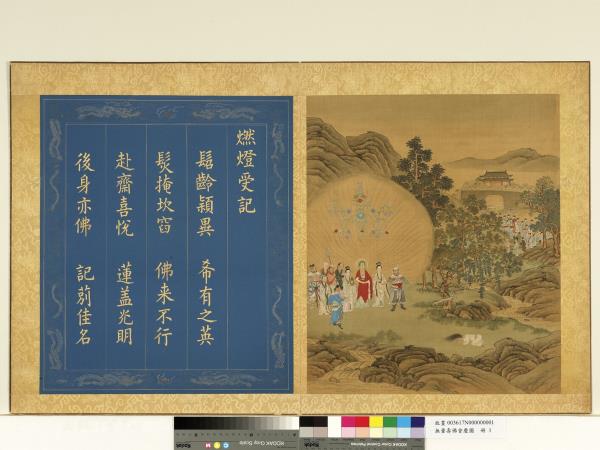 燃燈受記
髫齡穎異 希有之英
髮掩坎窞 佛来不行
赴齋喜悅 蓮盖光明
後身亦佛 記莂佳名
故畫 003617N000000001
無量壽佛會慶圖 冊 1
KODAK Gray Scale
KODAK Color Control Patches